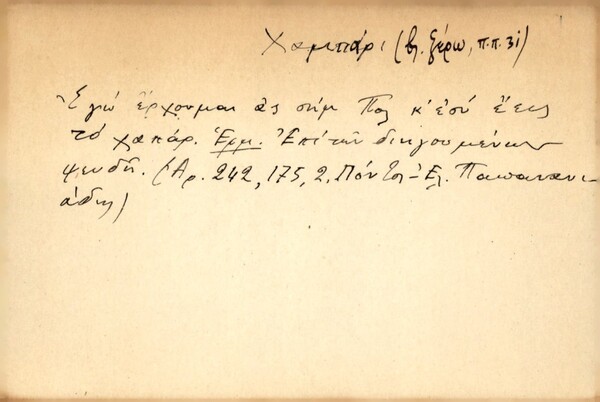 Χαμπάρι (βλ. ξέρω, π.π. 31)
Ἐγώ ἔρχουμαι ἀς σήμ Πολ κ' ἐσύ ἔεις
τό χαπάρ. Ἑρμ. Ἐπί τῶν διηγουμένων
ψευδῆ. (Ἀρ. 242, 175, 2. Πόντος - Ἐλ. Παπανανι-
άδης)